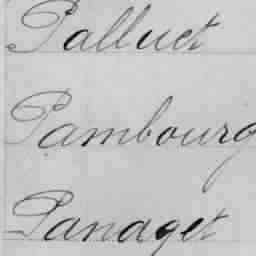 Palluet
Pambourg
Panaget